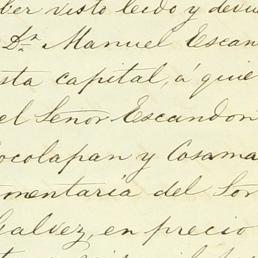 ber visto leido y devu
Dn. Manuel Escan
sta capital, á quie
el Señor Escandon
ocolapan y Cosama
mentaria del Sor
Galvez, en precio